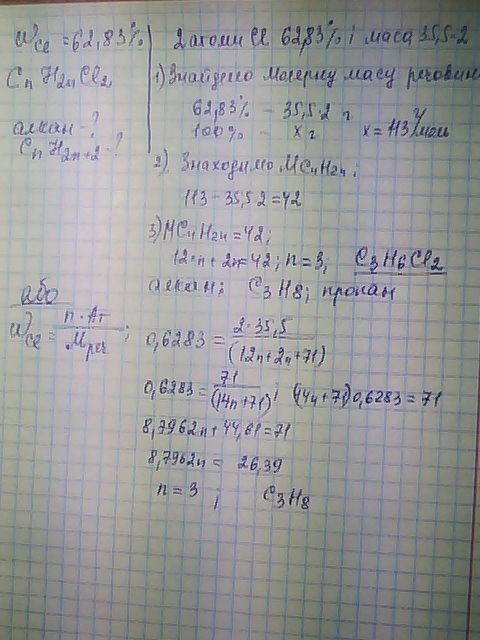 W Cl = 62,83%
CnH2nCl2
алкан - ?
CnH2n+2 - ?
2 атоми Cl 62,83% і маса 35,5·2
1) Знайдемо молярну масу речовини
62,83% - 35,5·2 г
100% - x г x = 113 г/моль
2). Знаходимо MCnH2n;
113 - 35,5·2 = 42
3) MCnH2n = 42;
12·n + 2n = 42; n = 3, C3H6Cl2
алкан: C3H8; пропан
або
W Cl = n·Ar / Mреч ;
0,6283 = 2·35,5 / (12n+2n+71)
0,6283 = 71 / (14n+71) ; (14n+71)0,6283 = 71
8,7962n + 44,61 = 71
8,7962n = 26,39
n = 3 ; C3H8